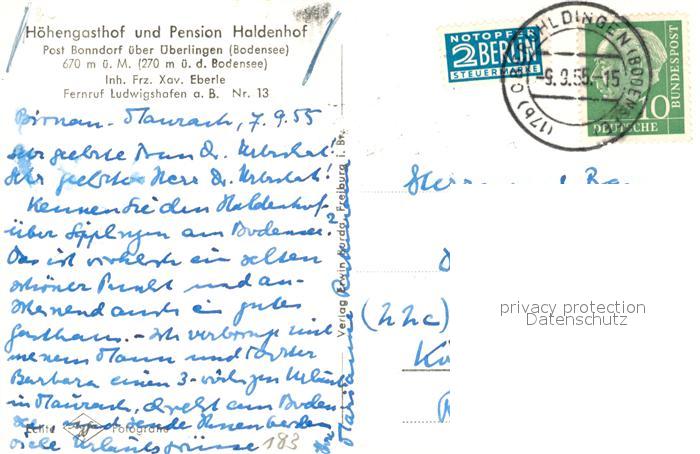 Höhengasthof und Pension Haldenhof
Post Bonndorf über Überlingen (Bodensee)
670 m ü. M. (270 m ü. d. Bodensee)
Inh. Frz. Xav. Eberle
Fernruf Ludwigshafen a. B. Nr. 13
Birnau-Maurach, 7.9.55
Sehr geehrte Frau Dr.
Sehr geehrter Herr Dr.
Kennen Sie den Haldenhof
über Sipplingen am Bodensee?
Das ist wirklich ein selten
schöner Punkt und an-
scheinend auch ein gutes
Gasthaus. - Ich verbringe mit
meinem Mann und Tochter
Barbara einen 3-wöchigen Urlaub
in Maurach, direkt am Boden-
see und sende Ihnen beiden
viele Urlaubsgrüsse
Ihre
Marianne
Echte Fotografie
183
Verlag Erwin Burda, Freiburg i. Br.
NOTOPFER
2 BERLIN
STEUERMARKE
(17b)
(BODENSEE)
-9.9.55.-15
10
DEUTSCHE
BUNDESPOST
(22c)
privacy protection
Datenschutz